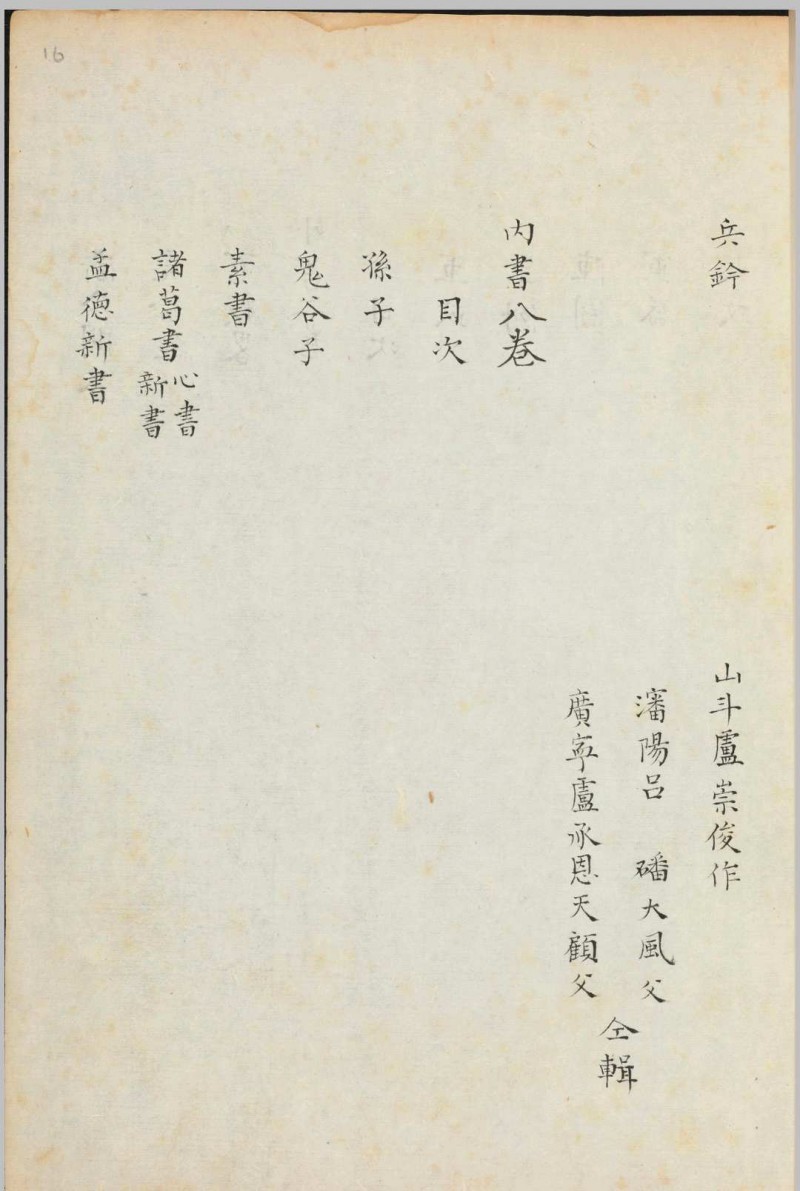 16
兵鈐
山斗盧崇俊作
瀋陽呂 磻大風父
廣寧盧承恩天顧父
仝輯
內書八卷
目次
孫子
鬼谷子
素書
諸葛書 心書 新書
孟德新書